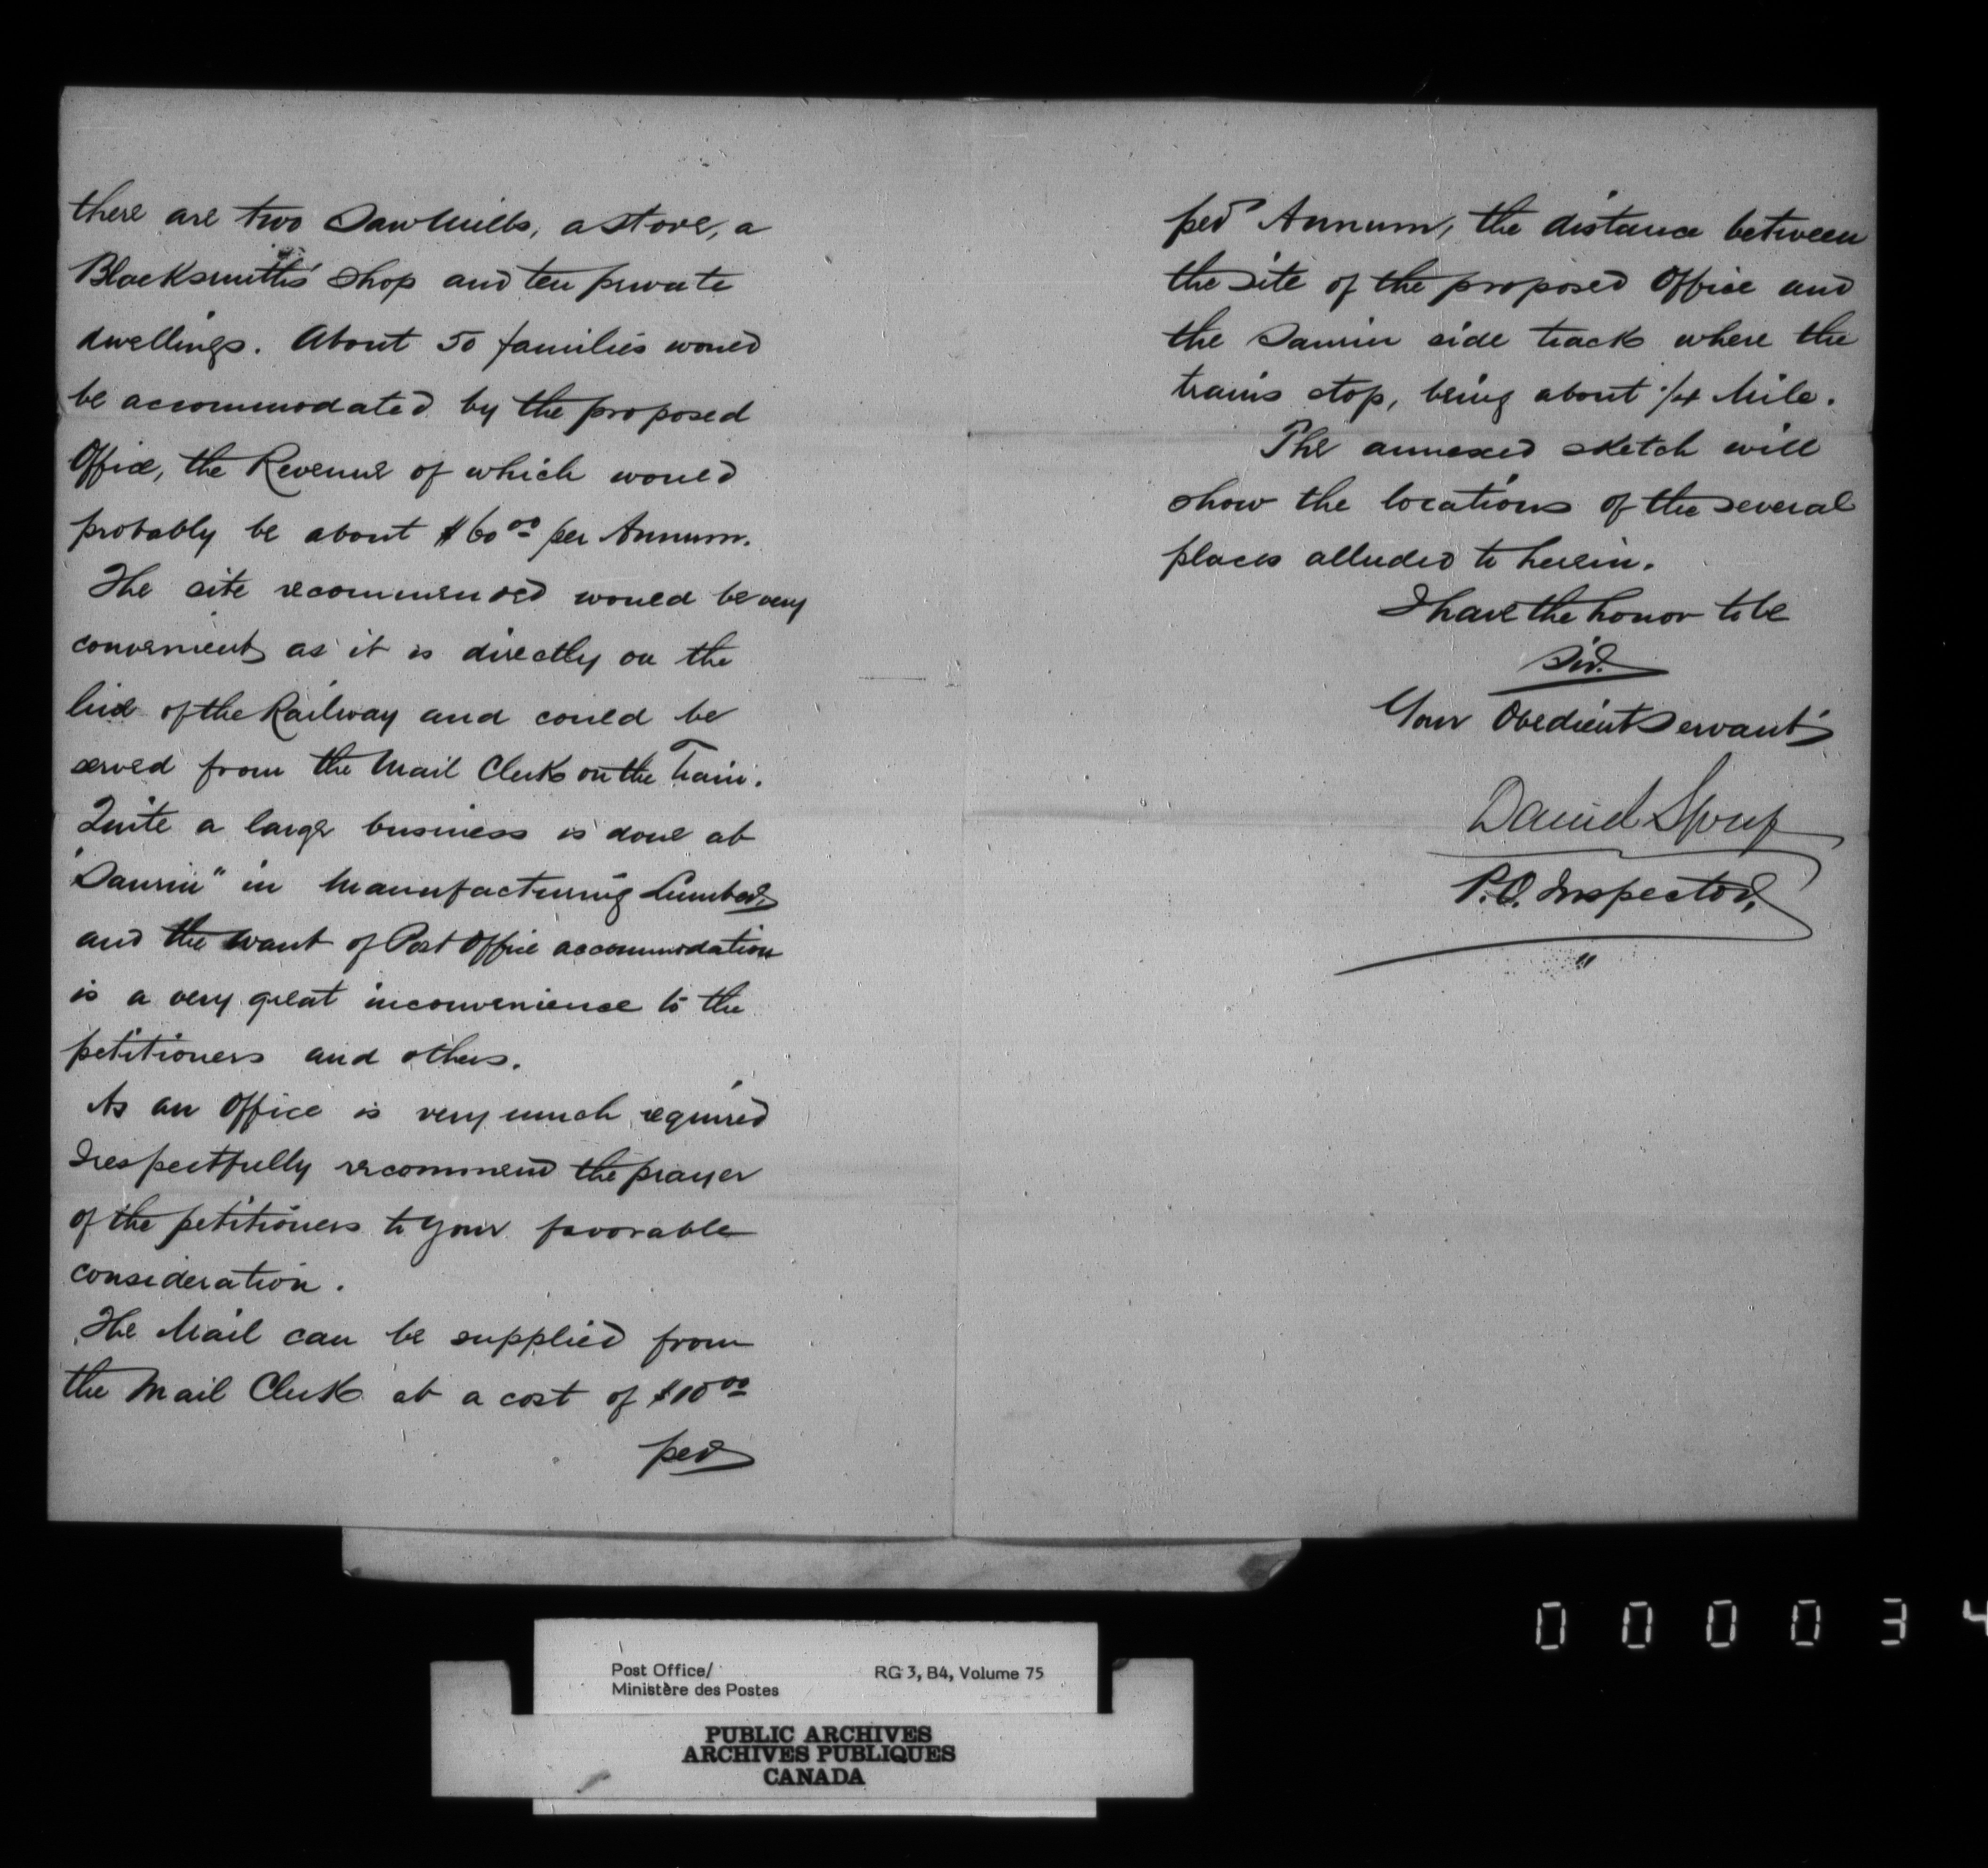 there are two Saw Mills, a store, a
Blacksmith's shop and ten private
dwellings. About 50 families would
be accommodated by the proposed
Office, the Revenue of which would
probably be about $60 00 per Annum.
The site recommended would be very
convenient as it is directly on the
line of the Railway and could be
served from the Mail Clerk on the Train.
Quite a large business is done at
"Saurin" in Manufacturing Lumber,
and the want of Post Office accommodation
is a very great inconvenience to the
petitioners and others.
As an Office is very much required
I respectfully recommend the prayer
of the petitioners to your favorable
consideration.
The Mail can be supplied from
the Mail Clerk at a cost of $10 00
per
per Annum, the distance between
the site of the proposed Office and
the Saurin side track where the
trains stop, being about 1/4 Mile.
The annexed sketch will
show the locations of the several
places alluded to herein.
I have the honor to be
Sir.
Your Obedient Servant
Daniel Spry
P.O. Inspector,
"
Post Office/
Ministère des Postes
RG 3, B4, Volume 75
PUBLIC ARCHIVES
ARCHIVES PUBLIQUES
CANADA
0 0 0 0 3 4